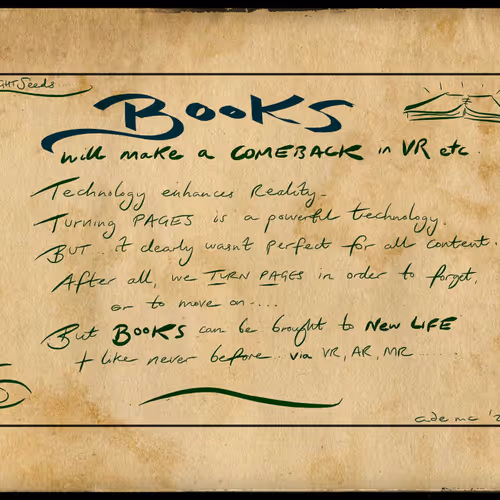 GHTSeeds....
BOOKS
will make a COMEBACK in VR etc.
Technology enhances Reality.
Turning PAGES is a powerful technology.
BUT.. it clearly wasn't perfect for all content.
After all, we TURN PAGES in order to forget,
or to move on....
But BOOKS can be brought to NEW LIFE
+ like never before.. via VR, AR, MR.......
ade mc '2